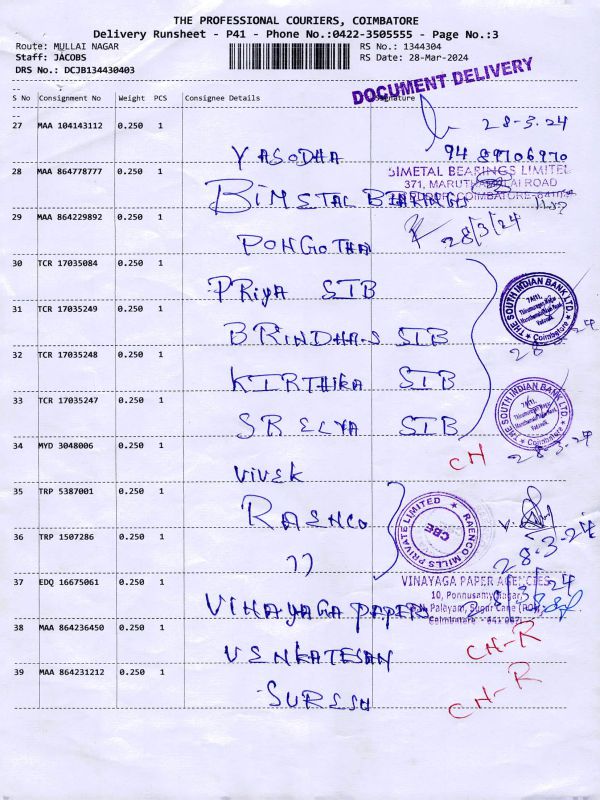 THE PROFESSIONAL COURIERS, COIMBATORE
Delivery Runsheet - P41 - Phone No.:0422-3505555 - Page No.:3
Route: MULLAI NAGAR RS No.: 1344304
Staff: JACOBS RS Date: 28-Mar-2024
DRS No.: DCJB134430403
DOCUMENT DELIVERY
S No Consignment No Weight PCS Consignee Details Signature
27 MAA 104143112 0.250 1 28-3.24
YASODHA 94 89706970
28 MAA 864778777 0.250 1 BIMETAL BEARINGS LIMITED
371, MARUTHAMALAI ROAD
BIMETAL BEARINGS COIMBATORE
29 MAA 864229892 0.250 1 28/3/24
PONGOTHAI
30 TCR 17035084 0.250 1
PRiYA SIB
THE SOUTH INDIAN BANK LTD.
Coimbatore
31 TCR 17035249 0.250 1
BRINDHA.S SIB 28-3-24
32 TCR 17035248 0.250 1
KIRTHiKA SIB
THE SOUTH INDIAN BANK LTD.
Coimbatore
33 TCR 17035247 0.250 1
SRELYA SIB
34 MYD 3048006 0.250 1 CH 28-3-24
ViVEK
35 TRP 5387001 0.250 1
RAENCO
RAENCO MILLS PRIVATE LIMITED
CBE
36 TRP 1507286 0.250 1
28-3-24
37 EDQ 16675061 0.250 1 VINAYAGA PAPER AGENCIES
10, Ponnusamy Nagar,
VINAYAGA PAPERS Palayam, Sugar Cane (PO),
Coimbatore - 641 007
38 MAA 864236450 0.250 1 CH-R
VENKATESAN
39 MAA 864231212 0.250 1 CH-R
SURESH